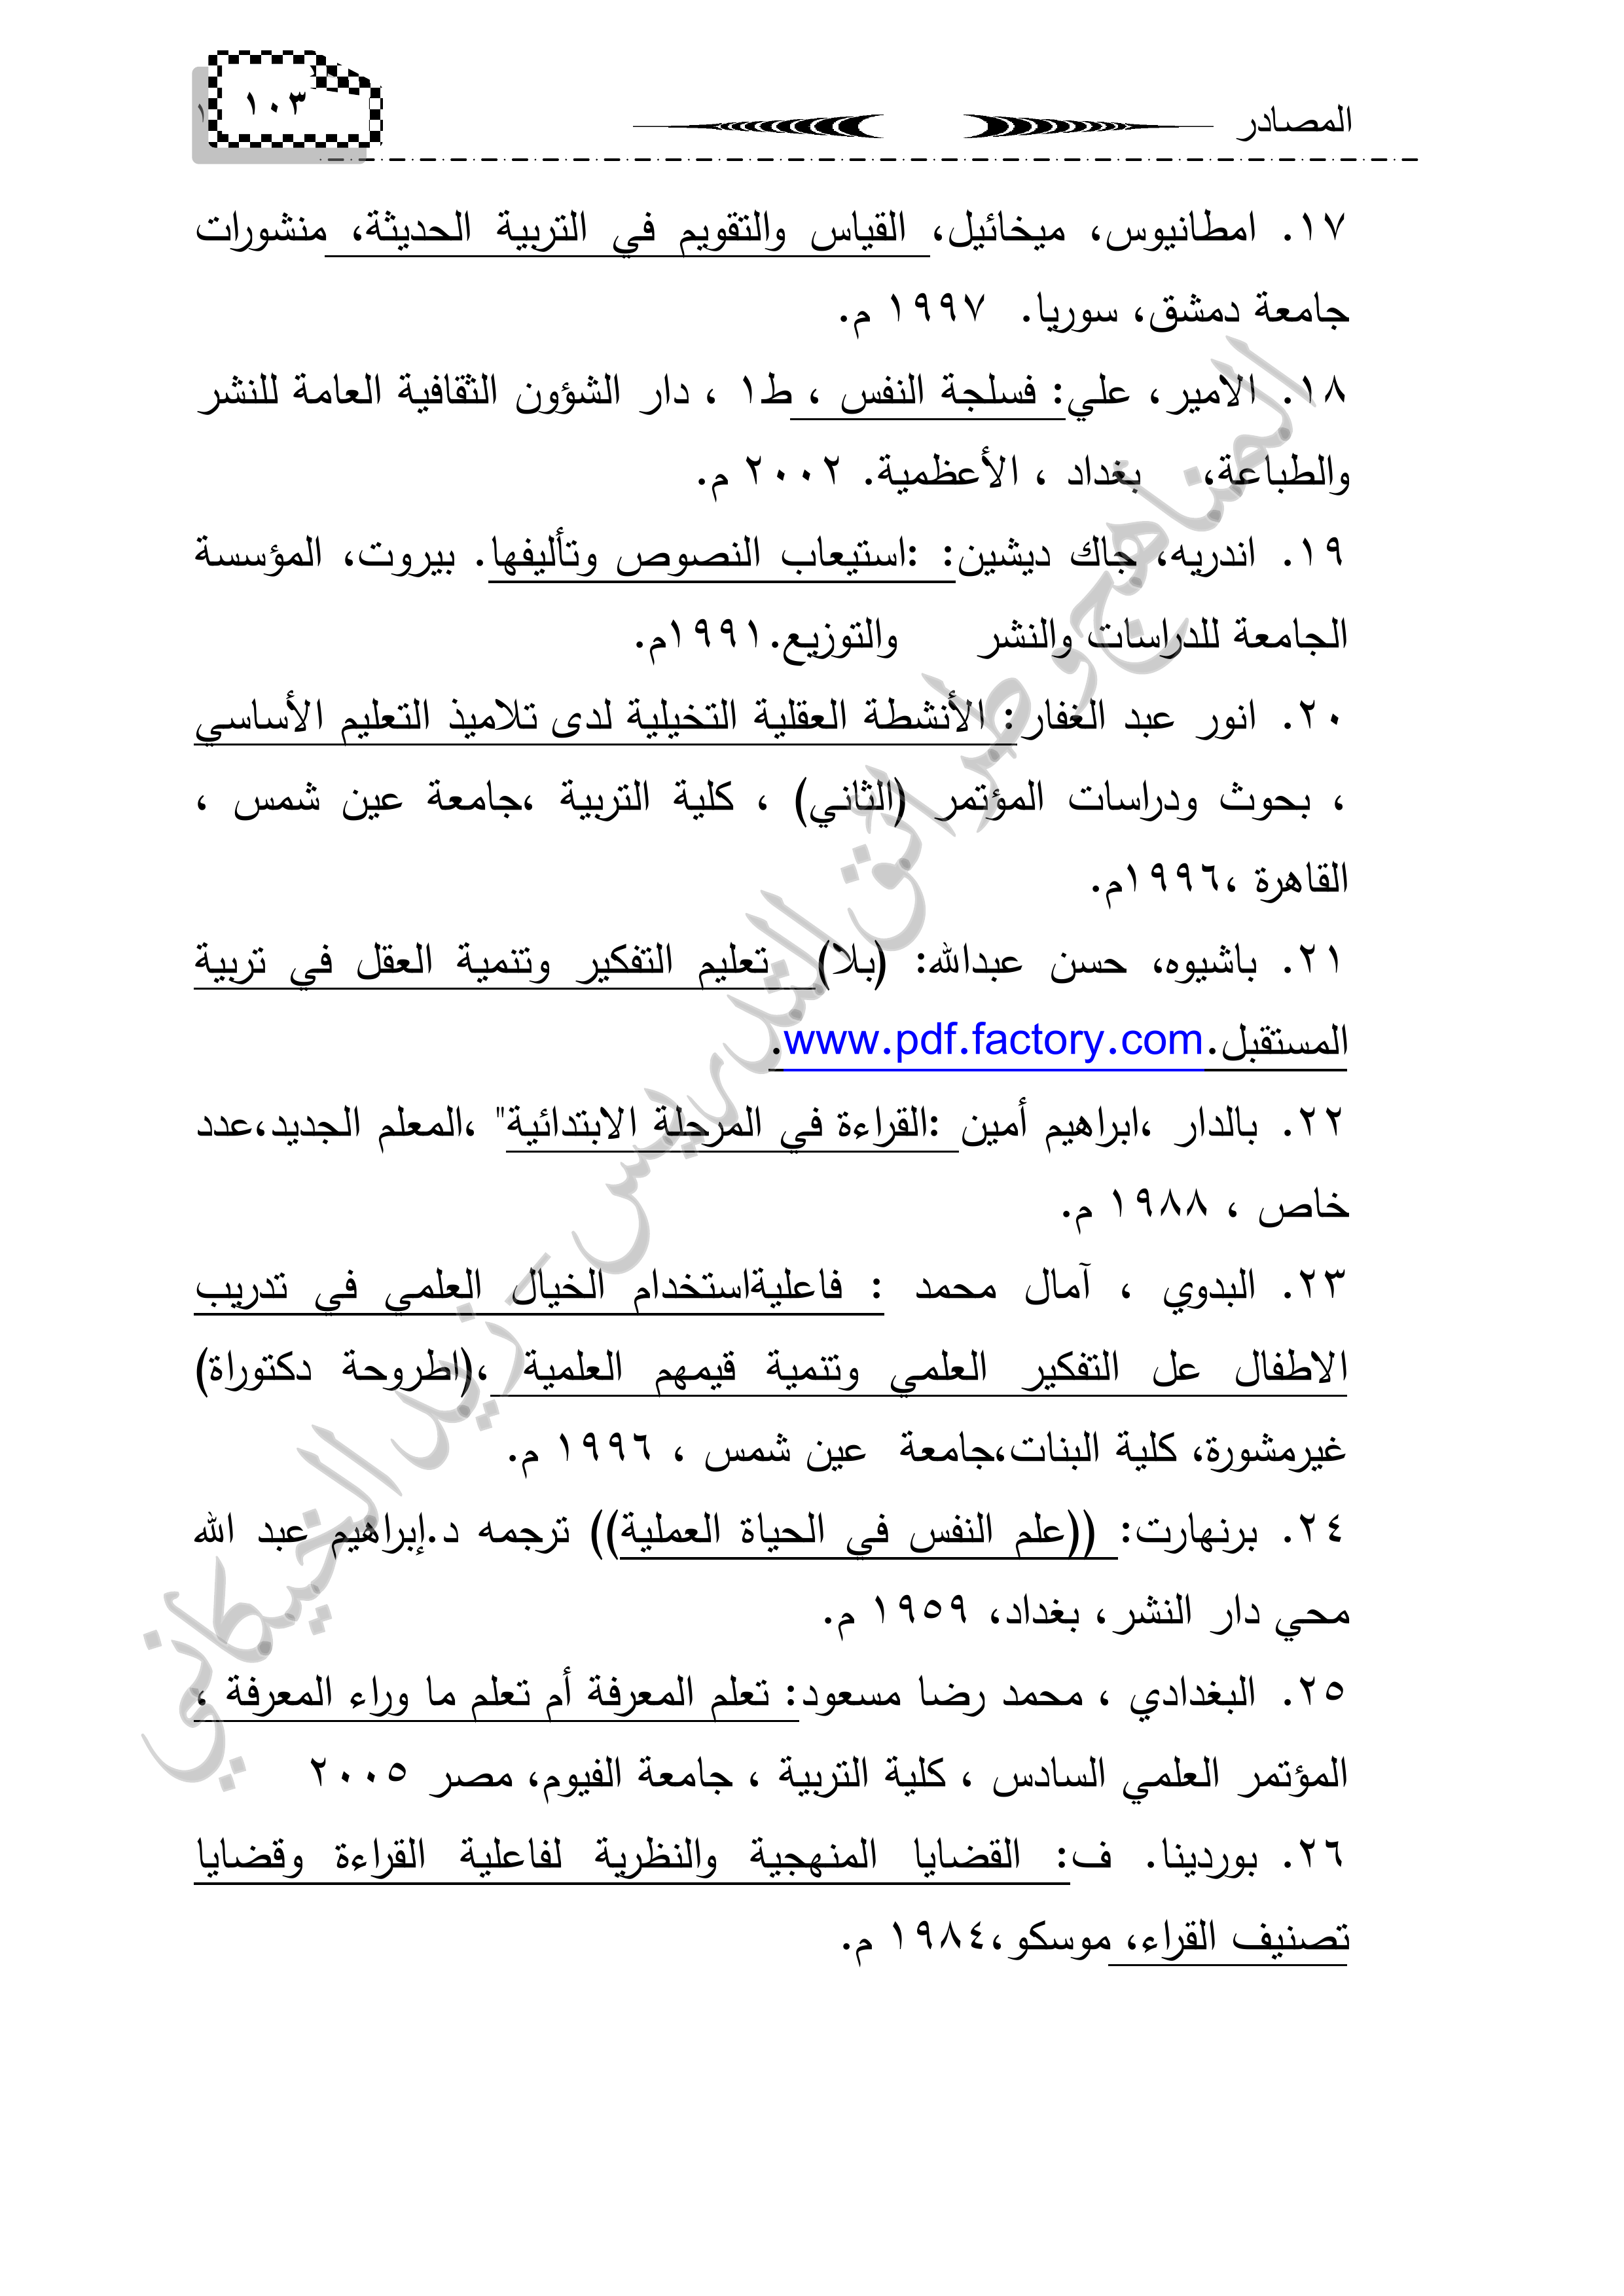 المصادر
١٠٣
١٧. امطانيوس، ميخائيل، القياس والتقويم في التربية الحديثة، منشورات
جامعة دمشق، سوريا. ١٩٩٧ م.
١٨. الامير، علي: فسلجة النفس ، ط١ ، دار الشؤون الثقافية العامة للنشر
والطباعة، بغداد ، الأعظمية. ٢٠٠٢ م.
١٩. اندريه، جاك ديشين: :استيعاب النصوص وتأليفها. بيروت، المؤسسة
الجامعة للدراسات والنشر والتوزيع.١٩٩١م.
٢٠. انور عبد الغفار: الأنشطة العقلية التخيلية لدى تلاميذ التعليم الأساسي
، بحوث ودراسات المؤتمر (الثاني) ، كلية التربية ،جامعة عين شمس ،
القاهرة ،١٩٩٦م.
٢١. باشيوه، حسن عبدالله: (بلا) تعليم التفكير وتنمية العقل في تربية
المستقبل.www.pdf.factory.com.
٢٢. بالدار ،ابراهيم أمين :القراءة في المرحلة الابتدائية" ،المعلم الجديد،عدد
خاص ، ١٩٨٨ م.
٢٣. البدوي ، آمال محمد : فاعليةاستخدام الخيال العلمي في تدريب
الاطفال عل التفكير العلمي وتنمية قيمهم العلمية ،(اطروحة دكتوراة)
غيرمشورة، كلية البنات،جامعة عين شمس ، ١٩٩٦ م.
٢٤. برنهارت: ((علم النفس في الحياة العملية)) ترجمه د.إبراهيم عبد الله
محي دار النشر، بغداد، ١٩٥٩ م.
٢٥. البغدادي ، محمد رضا مسعود: تعلم المعرفة أم تعلم ما وراء المعرفة ،
المؤتمر العلمي السادس ، كلية التربية ، جامعة الفيوم، مصر ٢٠٠٥
٢٦. بوردينا. ف: القضايا المنهجية والنظرية لفاعلية القراءة وقضايا
تصنيف القراء، موسكو،١٩٨٤ م.
المناهج وطرائق التدريس - زيد الخيكاني